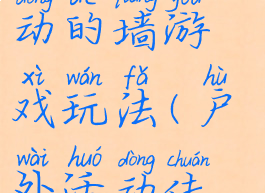 动的墙游
xì wán fǎ hù
戏玩法(户
wài huó dòng chuán
外活动传